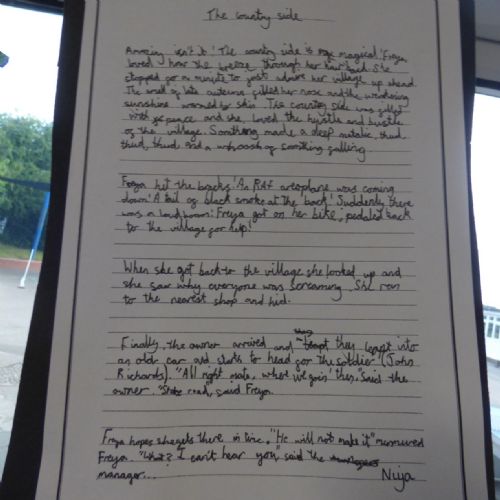 The country side
Amazing isn't it! The country side is magical! Freya
loved how the breeze through her hair. She
stopped for a minute to just admire her village up ahead.
The smell of late autumn filled her nose and the
sunshine warmed her skin. The country side was filled
with and she loved the hustle and bustle
of the village. made a deep metalic, thud
thud, thud and a whoosh of falling.
Freya hit the An RAF areoplane was coming
down! A tail of black smoke at the back! Suddenly there
was a loud boom! Freya got on her bike, pedaled back
to the village for help!
When she got back to the village she looked up and
she saw why everyone was screaming. She ran
to the nearest shop and hid.
Finally, the owner arrived and they into
an old car and starts to head for the soldier (John
Richards). "All right mate, where we goin' then," said the
owner. road", said Freya.
Freya hopes she gets there in time. "He will not make it" murmured
Freya. "What? I can't hear you," said the
manager...
Nuja